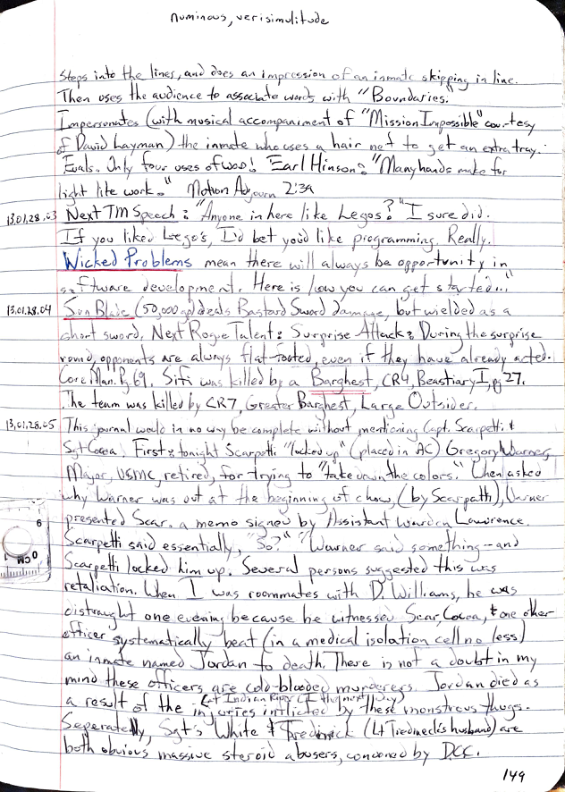 numinous, verisimilitude
steps into the lines, and does an impression of an inmate skipping in line.
Then uses the audience to associate words with "Boundaries."
Impersonates (with musical accompaniment of "Mission Impossible" courtesy
of David Layman) the inmate who uses a hair net to get an extra tray.
Evals. Only four uses of WOD! Earl Hinson: "Many hands make for
light like work." Motion Adjourn 2:39
13.01.28.03 Next TM Speech: "Anyone in here like Legos? I sure did.
If you liked Lego's, I'd bet you'd like programming. Really.
Wicked Problems mean there will always be opportunity in
software development. Here is how you can get started..."
13.01.28.04 Sun Blade (50,000 gp) deals Bastard Sword damage, but wielded as a
short sword. Next Rogue Talent: Surprise Attack: During the surprise
round, opponents are always flat-footed, even if they have already acted.
Core Man. Pg 69. Sifi was killed by a Barghest, CR4, Beastiary I, pg 27.
The team was killed by CR7, Greater Barghest, Large Outsider.
13.01.28.05 This journal would in no way be complete without mentioning Capt. Scarpetti &
Sgt Cocoa. First: tonight Scarpetti "locked up" (placed in AC) Gregory Warner,
Major, USMC, retired, for trying to "take down the colors." When asked
why Warner was out at the beginning of chow, (by Scarpatti), Warner
presented Scar. a memo signed by Assistant Warden Lawrence.
Scarpetti said essentially, "So?" Warner said something—and
Scarpetti locked him up. Several persons suggested this was
retaliation. When I was roommates with D. Williams, he was
distraught one evening because he witnessed Scar, Cocoa, & one other
officer systematically beat (in a medical isolation cell no less)
an inmate named Jordan to death. There is not a doubt in my
mind these officers are cold-blooded murderers. Jordan died as
(at Indian River CF the next day)
a result of the injuries inflicted by these monstrous thugs.
Seperately, Sgt's White & Frederick (Lt Tiedneck's husband) are
both obvious massive steroid abusers, condoned by DCC.
6
0 CM 1
149